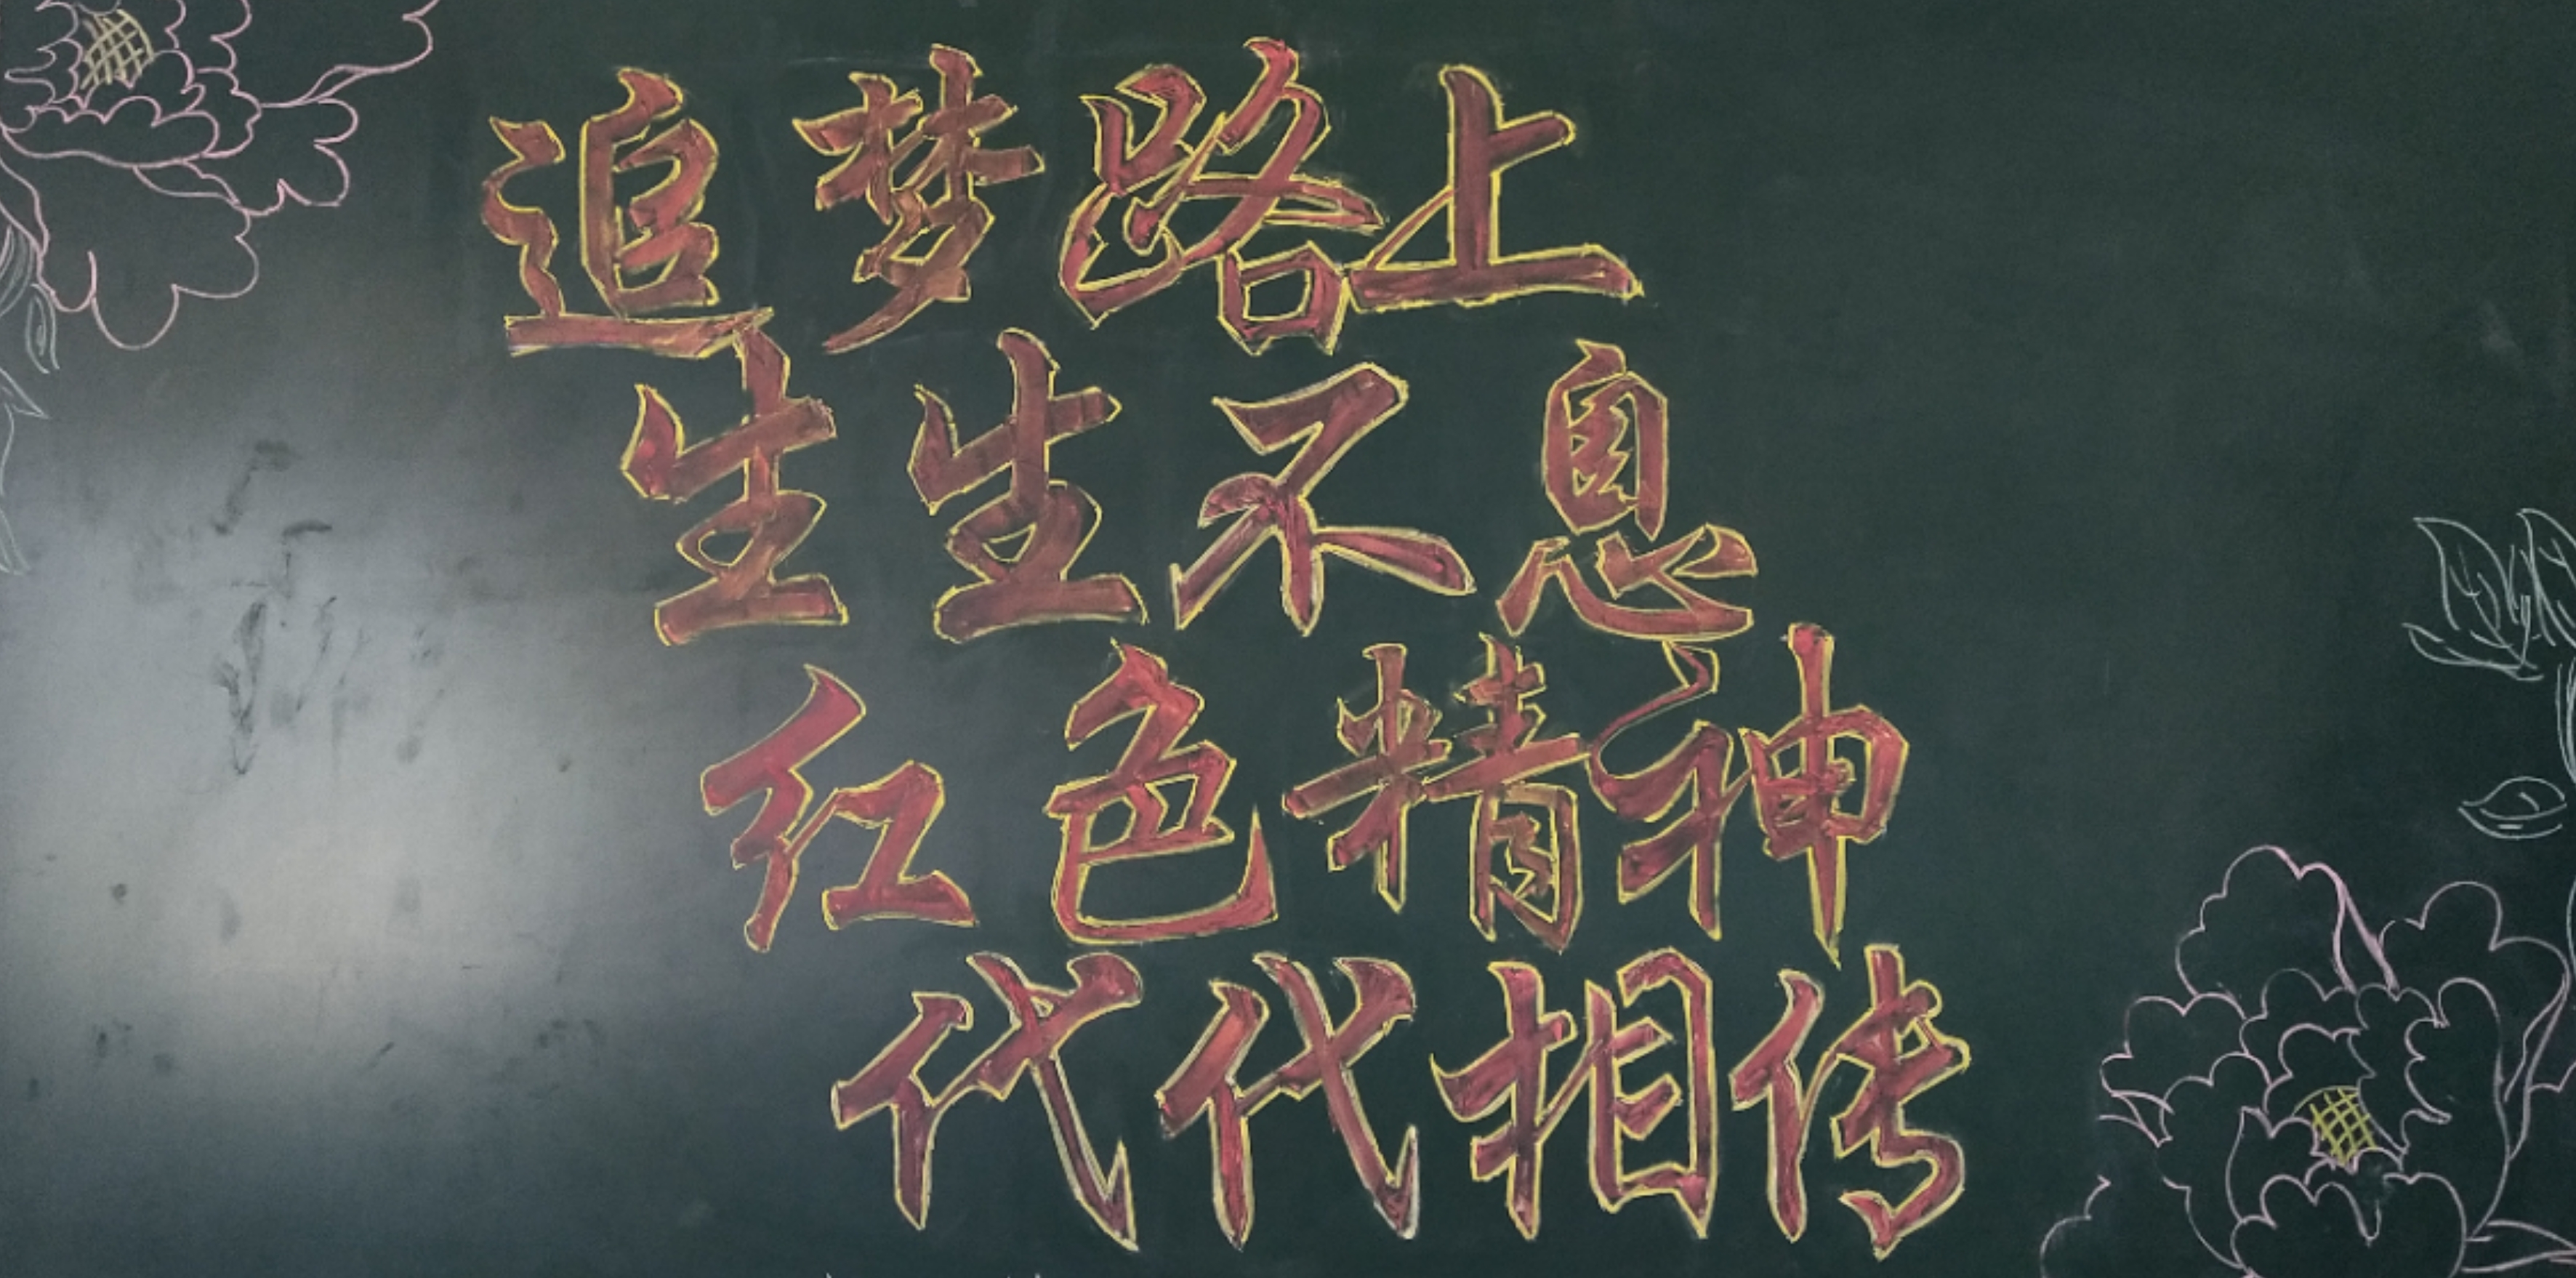 追梦路上
生生不息
红色精神
代代相传